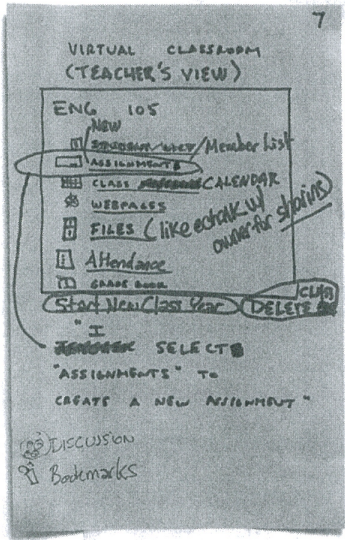 7
VIRTUAL CLASSROOM
(TEACHER'S VIEW)
ENG 105
NEW
/Member List
ASSIGNMENTS
CLASS CALENDAR
WEBPAGES
FILES (like eTalk w/
owner for sharing)
Attendance
GRADE BOOK
Start New Class Year
DELETE
"I
SELECT
"ASSIGNMENTS" TO
CREATE A NEW ASSIGNMENT"
DISCUSSION
Bookmarks